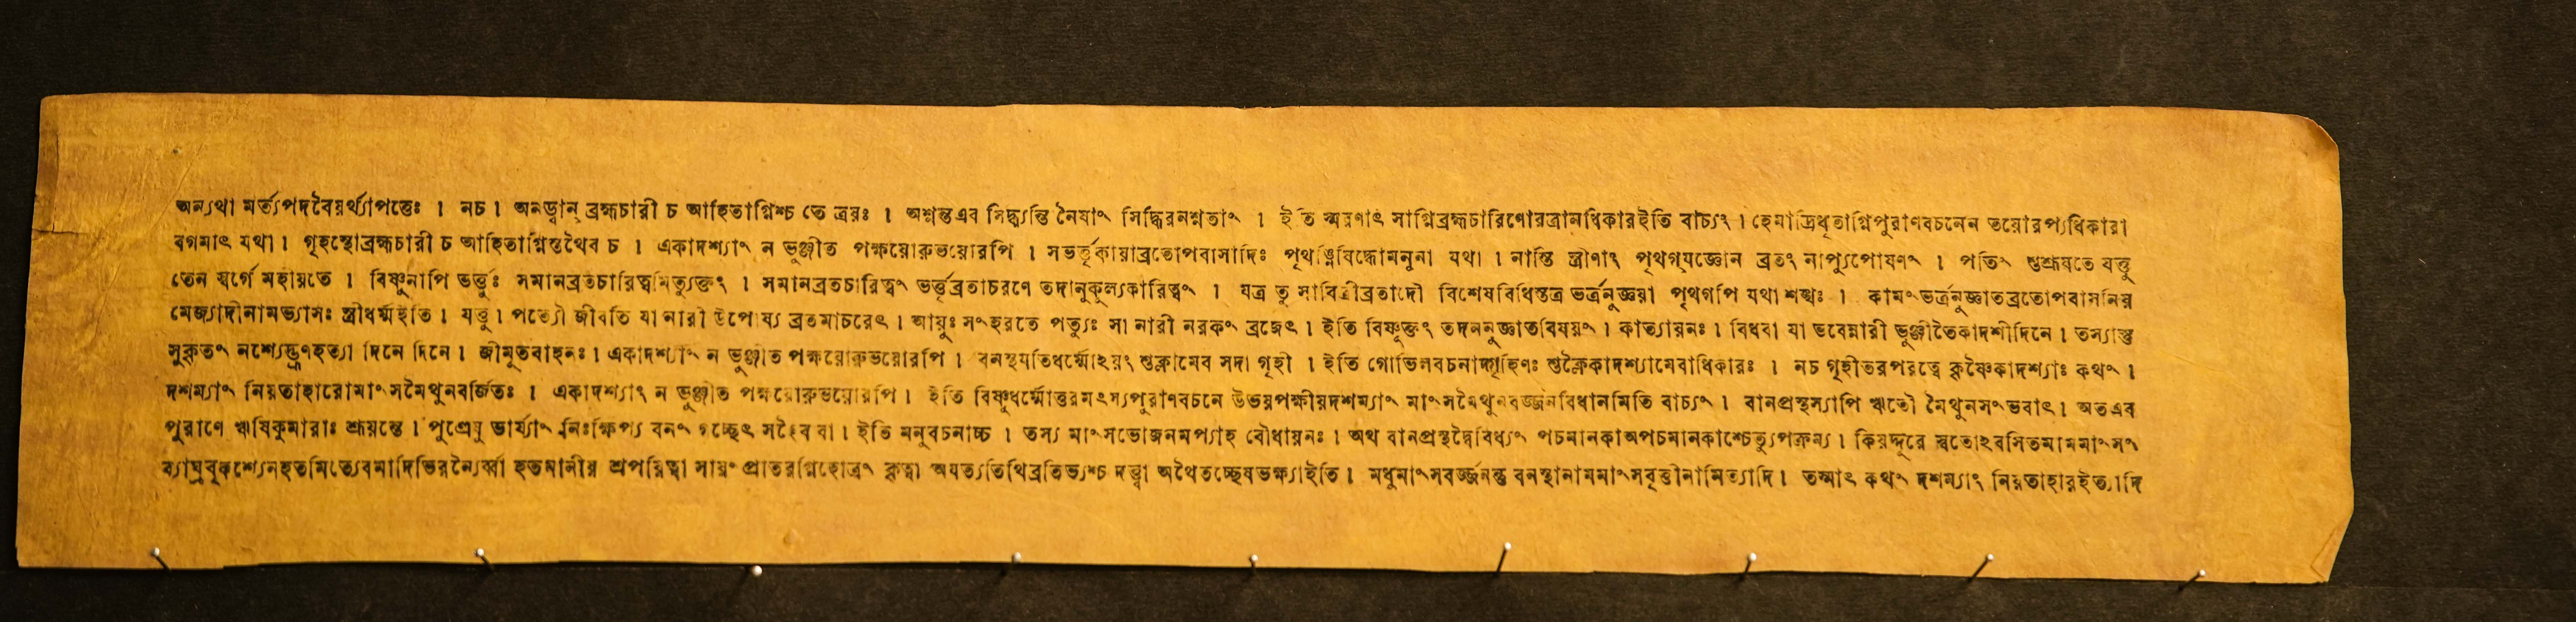 অন্যথা মর্ত্ত্যপদবৈয়র্থ্যাপত্তেঃ । নচ । অনড্বান্ ব্রহ্মচারী চ আহিতাগ্নিশ্চ তে ত্রয়ঃ । অশ্নন্তএব সিদ্ধ্যন্তি নৈষাং সিদ্ধিরনশ্নতাং । ইতি স্মরণাৎ সাগ্নিব্রহ্মচারিণোরত্রানধিকারইতি বাচ্যং । হেমাদ্রিধৃতাগ্নিপুরাণবচনেন তয়োরপ্যধিকারা
বগমাৎ যথা । গৃহস্থোব্রহ্মচারী চ আহিতাগ্নিস্তথৈব চ । একাদশ্যাং ন ভুঞ্জীত পক্ষয়োরুভয়োরপি । সভর্ত্তৃকায়াব্রতোপবাসাদিঃ পৃথঙ্নিষিদ্ধোমনুনা যথা । নাস্তি স্ত্রীণাং পৃথগ্‌যজ্ঞোন ব্রতং নাপ্যুপোষণং । পতিং শুশ্রূষতে যত্তু
তেন স্বর্গে মহীয়তে । বিষ্ণুনাপি ভর্ত্তুঃ সমানব্রতচারিত্বমিত্যুক্তং । সমানব্রতচারিত্বং ভর্ত্তৃব্রতাচরণে তদানুকূল্যকারিত্বং । যত্র তু সাবিত্রীব্রতাদৌ বিশেষবিধিস্তত্র ভর্ত্রনুজ্ঞয়া পৃথগপি যথা শঙ্খঃ । কামংভর্ত্রনুজ্ঞাতব্রতোপবাসনিয়
মেজ্যাদীনামভ্যাসঃ স্ত্রীধর্ম্মইতি । যত্তু । পত্যৌ জীবতি যা নারী উপোষ্য ব্রতমাচরেৎ । আয়ুঃ সংহরতে পত্যুঃ সা নারী নরকং ব্রজেৎ । ইতি বিষ্ণূক্তং তদননুজ্ঞাতবিষয়ং । কাত্যায়নঃ । বিধবা যা ভবেন্নারী ভুঞ্জীতৈকাদশীদিনে । তস্যাস্তু
সুকৃতং নশ্যেদ্ভ্রূণহত্যা দিনে দিনে । জীমূতবাহনঃ । একাদশ্যাং ন ভুঞ্জীত পক্ষয়োরুভয়োরপি । বনস্থযতিধর্ম্মোঽয়ং শুক্লামেব সদা গৃহী । ইতি গোভিলবচনাদ্গৃহিণঃ শুক্লৈকাদশ্যামেবাধিকারঃ । নচ গৃহীতরপরত্বে কৃষ্ণৈকাদশ্যাঃ কথং ।
দশম্যাং নিয়তাহারোমাংসমৈথুনবর্জিতঃ । একাদশ্যাং ন ভুঞ্জীত পক্ষয়োরুভয়োরপি । ইতি বিষ্ণুধর্ম্মোত্তরমৎস্যপুরাণবচনে উভয়পক্ষীয়দশম্যাং মাংসমৈথুনবর্জ্জনবিধানমিতি বাচ্যং । বানপ্রস্থস্যাপি ঋতৌ মৈথুনসংভবাৎ । অতএব
পুরাণে ঋষিকুমারাঃ শ্রূয়ন্তে । পুত্রেষু ভার্য্যাং নিঃক্ষিপ্য বনং গচ্ছেৎ সহৈব বা । ইতি মনুবচনাচ্চ । তস্য মাংসভোজনমপ্যাহ বৌধায়নঃ । অথ বানপ্রস্থদ্বৈবিধ্যং পচমানকাঅপচমানকাশ্চেত্যুপক্রম্য । কিয়দ্দূরে স্বতোঽবসিতমামমাংসং
ব্যাঘ্রবৃকশ্যেনহতমিত্যেবমাদিভিরন্যৈর্ব্বা হতমানীয় শ্রপয়িত্বা সায়ং প্রাতরগ্নিহোত্রং কৃত্বা অযত্যতিথিব্রতিভ্যশ্চ দত্ত্বা অথৈতচ্ছেষভক্ষ্যাইতি । মধুমাংসবর্জ্জনন্তু বনস্থানামমাংসবৃত্তীনামিত্যাদি । তস্মাৎ কথং দশম্যাং নিয়তাহারইত্যাদি